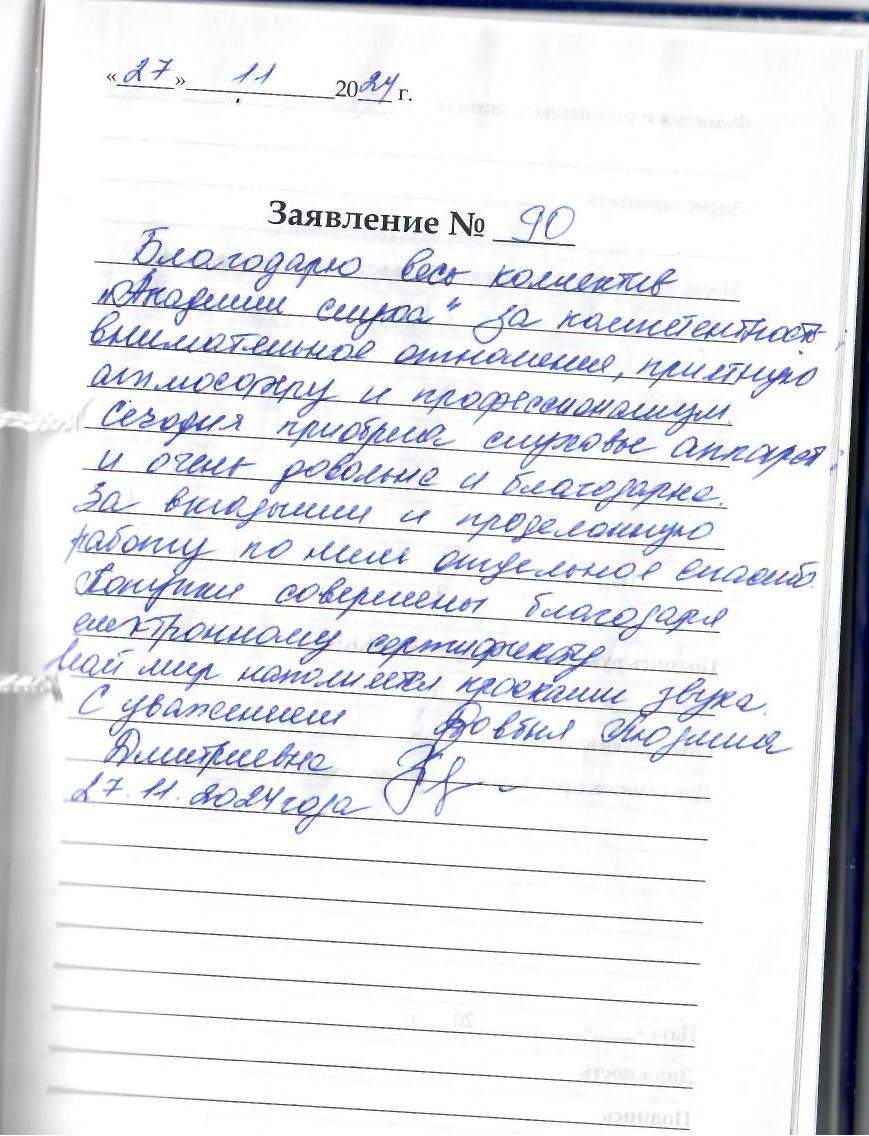 «27» 11 2024 г.
Заявление № 90
Благодарю весь коллектив
"Академии слуха" за компетентность,
внимательное отношение, приятную
атмосферу и профессионализм.
Сегодня приобрела слуховые аппараты
и очень довольна и благодарна.
За вкладыши и проделанную
работу по ним отдельное спасибо.
Покупки совершены благодаря
электронному сертификату
Мой мир наполняется красками звука.
С уважением Довбыш Людмила
Дмитриевна
27.11.2024 года